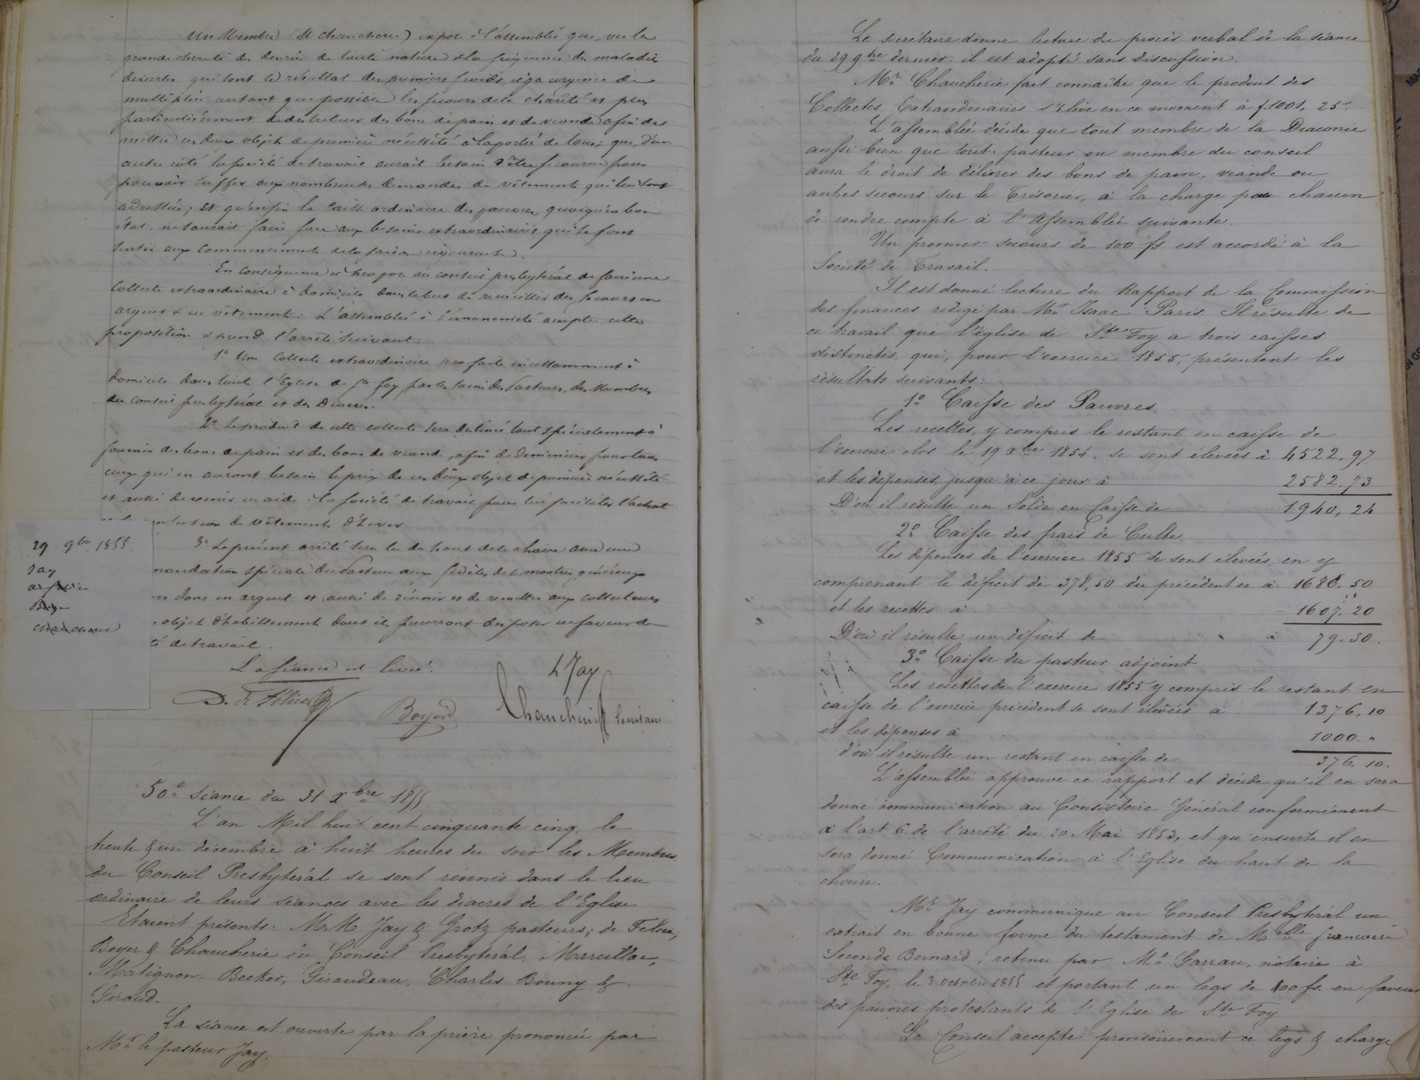 Un Membre (M Chaucherie) expose à l'assemblée que, vu la
grande cherté des denrées de toute nature & la fréquence des maladies
diverses qui sont le résultat des premiers froids, il y a urgence de
multiplier autant que possible les secours de la charité et plus
particulièrement de distribuer des bons de pain et de viande afin de
mettre ces deux objets de première nécessité à la portée de tous; que d'un
autre côté la société de travail aurait besoin d'être secourue pour
pouvoir suffire aux nombreuses demandes de vêtements qui lui sont
adressées; et qu'enfin la Caisse ordinaire des pauvres, quoiqu'en bon
état, ne saurait faire face aux besoins extraordinaires qui se font
sentir au commencement de la saison rigoureuse.
En conséquence il propose au conseil presbytéral de faire une
Collecte extraordinaire à domicile dans le but de recueillir des secours en
argent & en vêtements. L'assemblée à l'unanimité accepte cette
proposition & prend l'arrêté suivant:
1° Une Collecte extraordinaire sera faite incessamment à
domicile dans toute l'Eglise de Ste Foy par les soins des Pasteurs, des Membres
du conseil presbytéral et des Diacres.
2° Le produit de cette collecte sera destiné tout spécialement à
fournir des bons de pain et des bons de viande, afin de diminuer pour tous
ceux qui en auront besoin le prix de ces deux objets de première nécessité
et aussi de venir en aide à la société de travail pour lui faciliter l'achat
confection de vêtements d'hiver.
3° Le présent arrêté sera lu du haut de la chaire avec une
mandation spéciale du Pasteur aux fidèles de se montrer généreux
dons en argent et aussi de réunir et de remettre aux collecteurs
objets d'habillement dont ils pourront disposer en faveur de
té de travail.
29. 9bre 1855
Jay
de félice
Boyer
Chaucherie
La séance est levée.
L Jay
D. de Félice
Boyer
Chaucherie Secrétaire
50e Séance du 31 Xbre 1855
L'an Mil huit cent cinquante cinq, le
trente & un décembre à huit heures du soir les Membres
du Conseil Presbytéral se sont réunis dans le lieu
ordinaire de leurs séances avec les diacres de l'Eglise
Etaient présents: M.M Jay & Grotz pasteurs; de Félice,
Boyer & Chaucherie du Conseil Presbytéral, Marcillac,
Matignon, Becker, Giraudeau, Charles Bouny &
Giraud.
La séance est ouverte par la prière prononcée par
Mr le pasteur Jay.
Le secrétaire donne lecture du procès verbal de la séance
du 29 9bre dernier, il est adopté sans discussion.
Mr Chaucherie fait connaître que le produit des
Collectes Extraordinaires s'élève en ce moment à f 1001, 25.
L'assemblée décide que tout membre de la Diaconie
aussi bien que tout pasteur ou membre du conseil
aura le droit de délivrer des bons de pain, viande ou
autres secours sur le Trésorier, à la charge pour chacun
de rendre compte à l'Assemblée suivante.
Un premier secours de 100 fs est accordé à la
Société de Travail.
Il est donné lecture du Rapport de la Commission
des finances rédigé par Mr Isaac Paris. Il résulte de
ce travail que l'Eglise de Ste Foy a trois caisses
distinctes, qui, pour l'exercice 1855, présentent les
résultats suivants:
1° Caisse des Pauvres
Les recettes, y compris le restant en caisse de
l'exercice clos le 19 Xbre 1854. se sont élevées à 4522,97
et les dépenses, jusqu'à ce jour à 2582,73
D'où il résulte un Solde en Caisse de 1940, 24
2° Caisse des frais de Culte.
Les dépenses de l'exercice 1855 se sont élevées, en y
comprenant le déficit de 378,50 du précédent ce à 1686.50
et les recettes à 1607.20
D'où il résulte un déficit de 79.30.
3° Caisse du pasteur adjoint
Les recettes de l'exercice 1855 y compris le restant en
caisse de l'exercice précédent se sont élevées à 1376,10
et les dépenses à 1000.
d'où il résulte un restant en caisse de 376.10.
L'assemblée approuve ce rapport et décide qu'il en sera
donné communication au Consistoire Général conformément
à l'art 6 de l'arrêté du 20 Mai 1853, et qu'ensuite il en
sera donné Communication à l'Eglise du haut de la
chaire.
Mr Jay communique au Conseil Presbytéral un
extrait en bonne forme du testament de Melle Françoise
Seconde Bernard, retenu par Me Garrau, notaire à
Ste Foy, le 3 octobre 1855 et portant un legs de 100 fs. en faveur
des pauvres protestants de l'Eglise de Ste Foy.
Le Conseil accepte provisoirement ce legs & charge